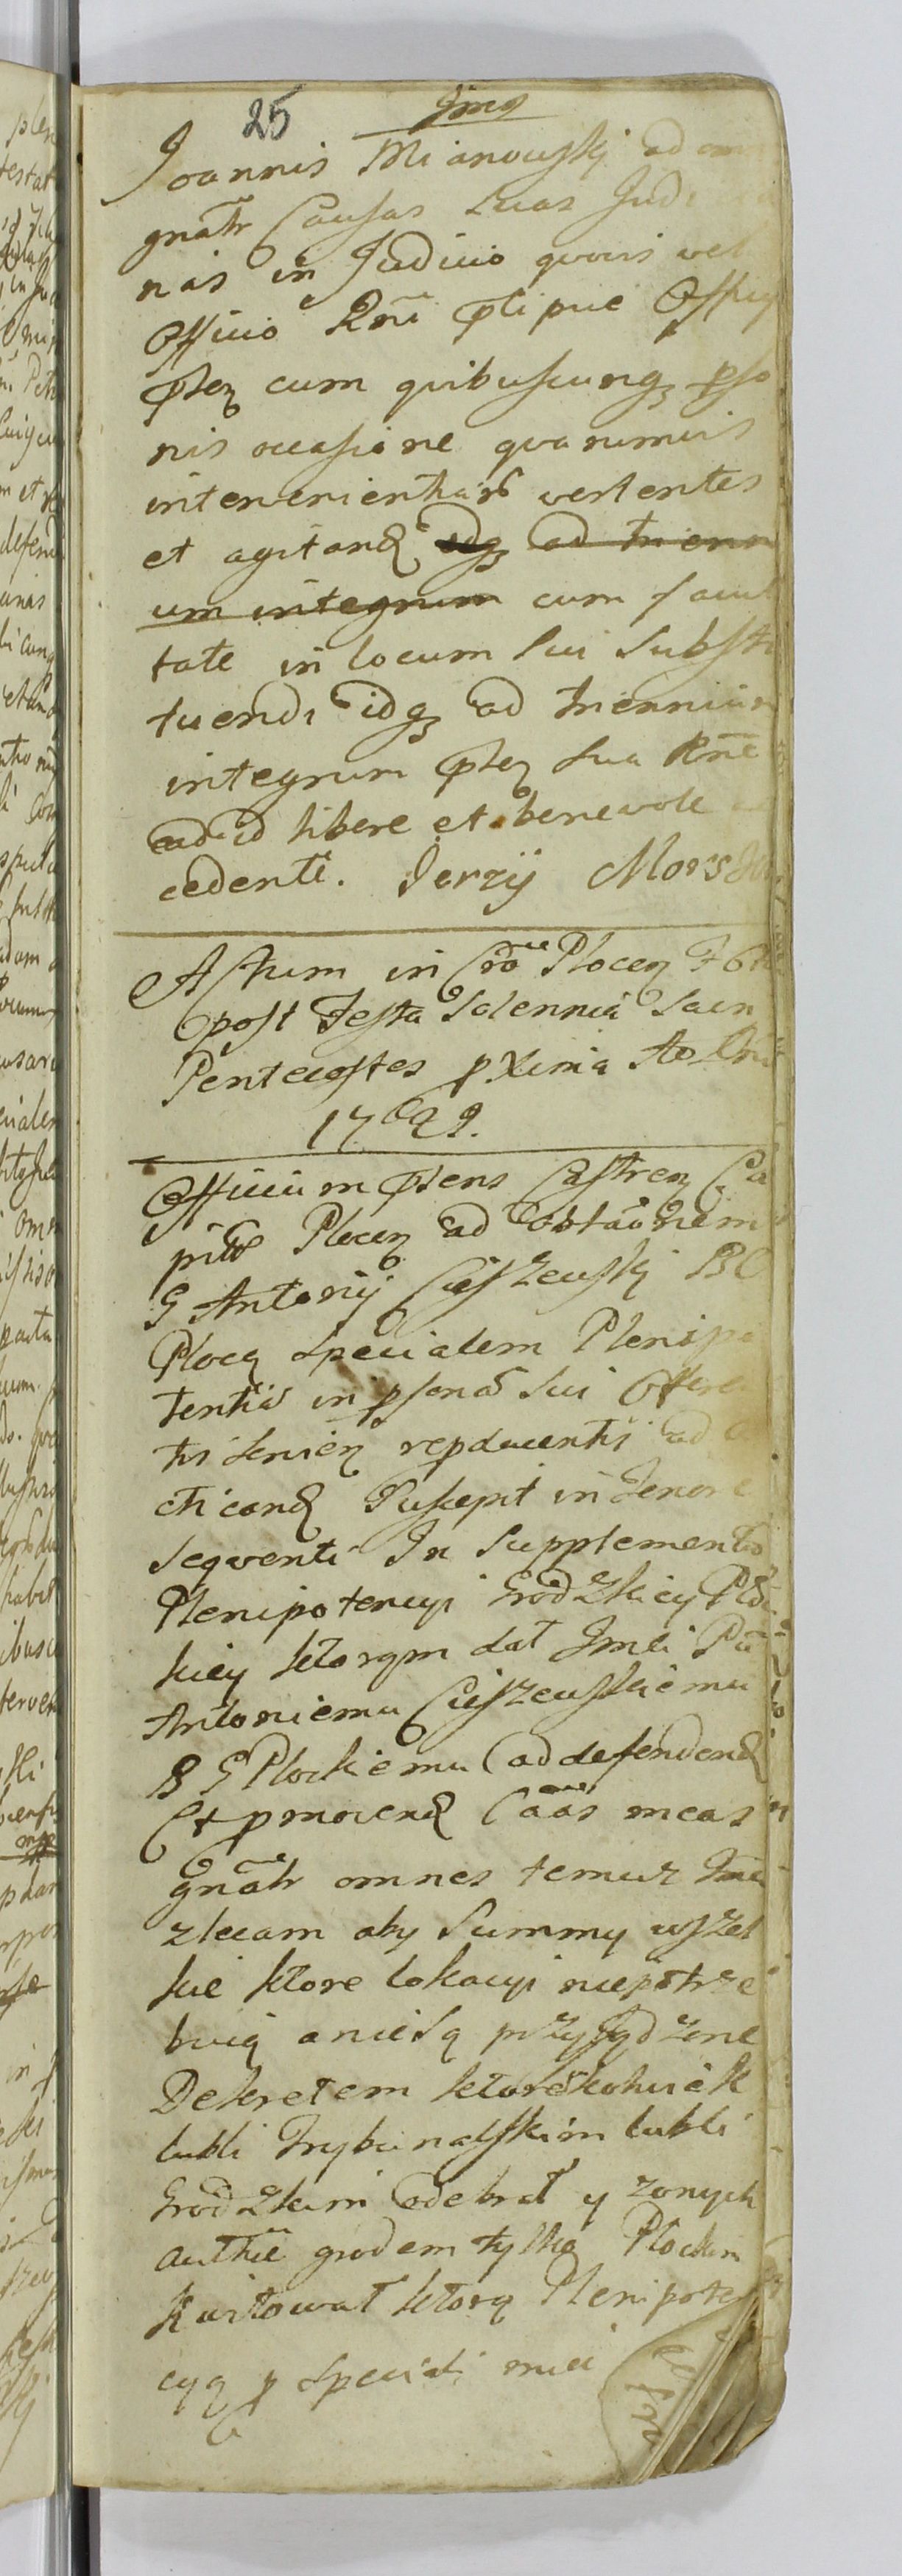 25
Joannis Mianowskj ad omn
gnãlr Causas suas Judicia
nas in Judicio quovis vel
Officio Rñi ptipue Officij
pñtez cum quibuscunqz pso
nis occasione quarumvis
intervenientiarũ vertentes
et agitand idqz ad trienn
um integrum cum facul
tate in locum sui substi
tuendi idqz ad triennium
integrum pñtez sua Rñe
ad id libere et benevole
cedenti. Jerzÿ
Actum in Crõ Plocen
post Festa Solennia Sacr
Pentecostes pXima Ao Dni
1729.
Officium pñens Castren Ca
pitle Plocen ad oblãõnem
G Antonij Cieszewskj BC
Plocen Specialem Plenipo
tentiã in psona sui Offeren
tis Jenien repducentis ad
cticand Suscepit in Tenore
sequenti In Supplemento
Plenipotencyi Grodzkiey Płoc
kiey ktorąm dał Jmci Pã
Antoniemu Cieszewskiemu
B G Plockiemu ad defendend
Et pmovend Cãas meas
gnãlr omnes temuz Jmci
zlecam aby Summy wszel
kie ktore lokacyi niepotrze
buią a nie są przysądzone
Dekretem ktorẽkolwiek
lubli Trybunalskim lubli
Grodzkim odebrał y zonych
authẽ grodem tylko Plockim
Kwitował ktorą Plenipoten
cyą p speciali mei